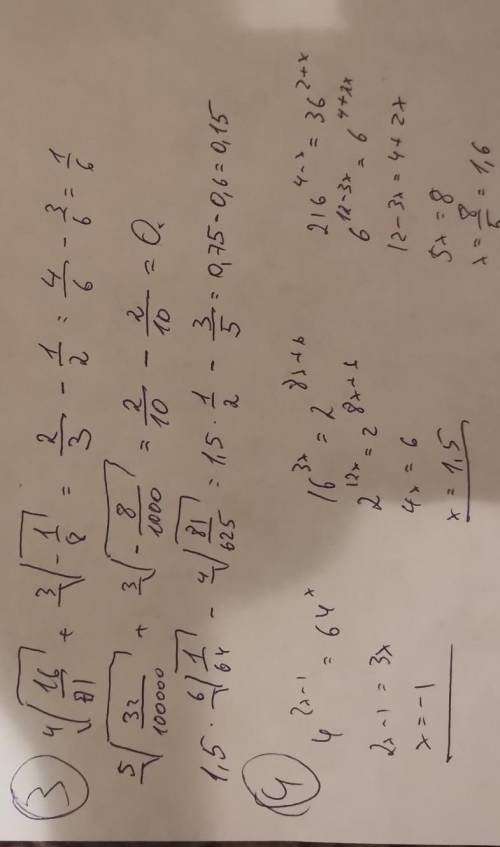 3
⁴√(16/81) + ³√(-1/8) = 2/3 - 1/2 = 4/6 - 3/6 = 1/6
⁵√(32/100000) + ³√(-8/1000) = 2/10 - 2/10 = 0
1,5 · ⁶√(1/64) - ⁴√(81/625) = 1,5 · 1/2 - 3/5 = 0,75 - 0,6 = 0,15
4
4^(2x-1) = 64^x
2x-1 = 3x
x = -1
16^(3x) = 2^(8x+6)
2^(12x) = 2^(8x+6)
4x = 6
x = 1,5
216^(4-x) = 36^(2+x)
6^(12-3x) = 6^(4+2x)
12-3x = 4+2x
5x = 8
x = 8/5 = 1,6